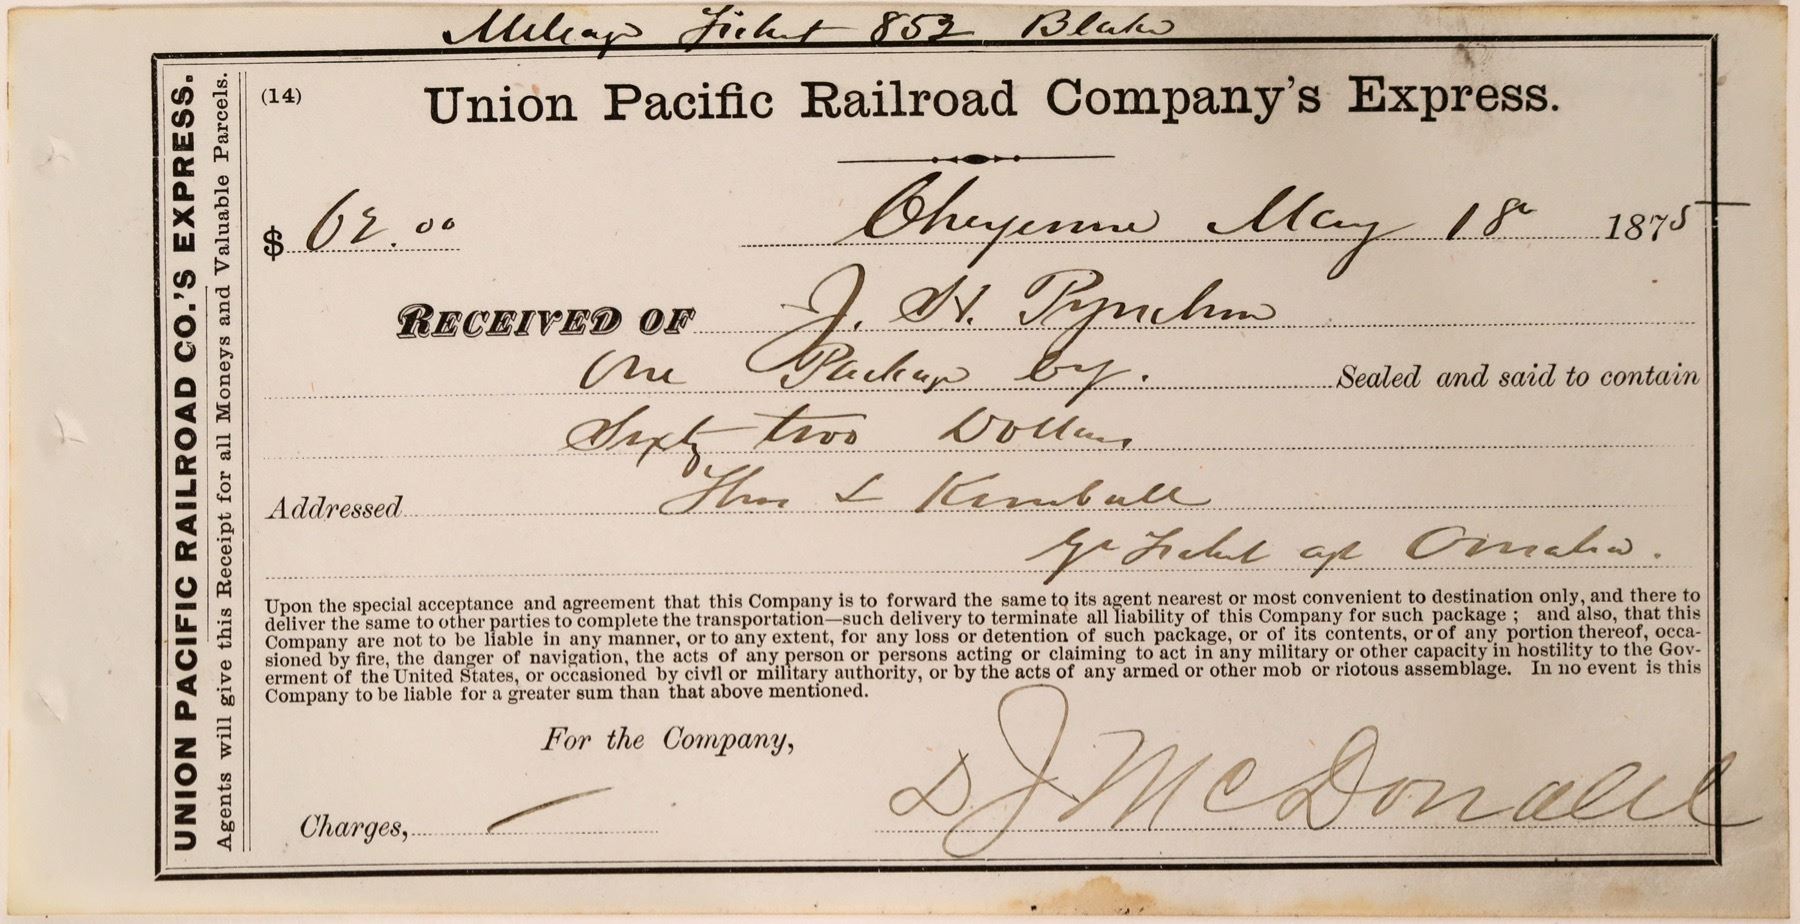 Mileage Ticket 852 Blake
UNION PACIFIC RAILROAD CO.'S EXPRESS.
Agents will give this Receipt for all Moneys and Valuable Parcels.
(14)
Union Pacific Railroad Company's Express.
$ 62.00 Cheyenne May 18 1875
RECEIVED OF J. H. Pynchon
One Package Cy. Sealed and said to contain
Sixty two Dollars
Addressed Thos L Kimball
Gn Ticket agt Omaha.
Upon the special acceptance and agreement that this Company is to forward the same to its agent nearest or most convenient to destination only, and there to
deliver the same to other parties to complete the transportation—such delivery to terminate all liability of this Company for such package ; and also, that this
Company are not to be liable in any manner, or to any extent, for any loss or detention of such package, or of its contents, or of any portion thereof, occa-
sioned by fire, the danger of navigation, the acts of any person or persons acting or claiming to act in any military or other capacity in hostility to the Gov-
erment of the United States, or occasioned by civil or military authority, or by the acts of any armed or other mob or riotous assemblage. In no event is this
Company to be liable for a greater sum than that above mentioned.
For the Company,
Charges, D J McDonald